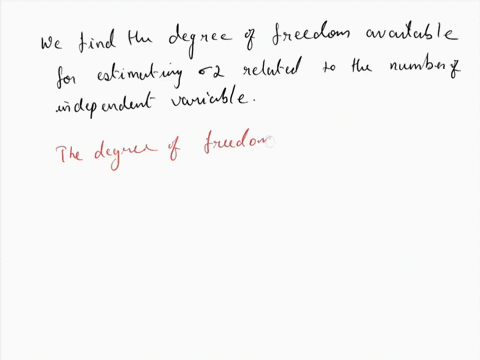 We find the degree of freedom available
for estimating σ2 related to the number of
independent variable.
The degree of freedom